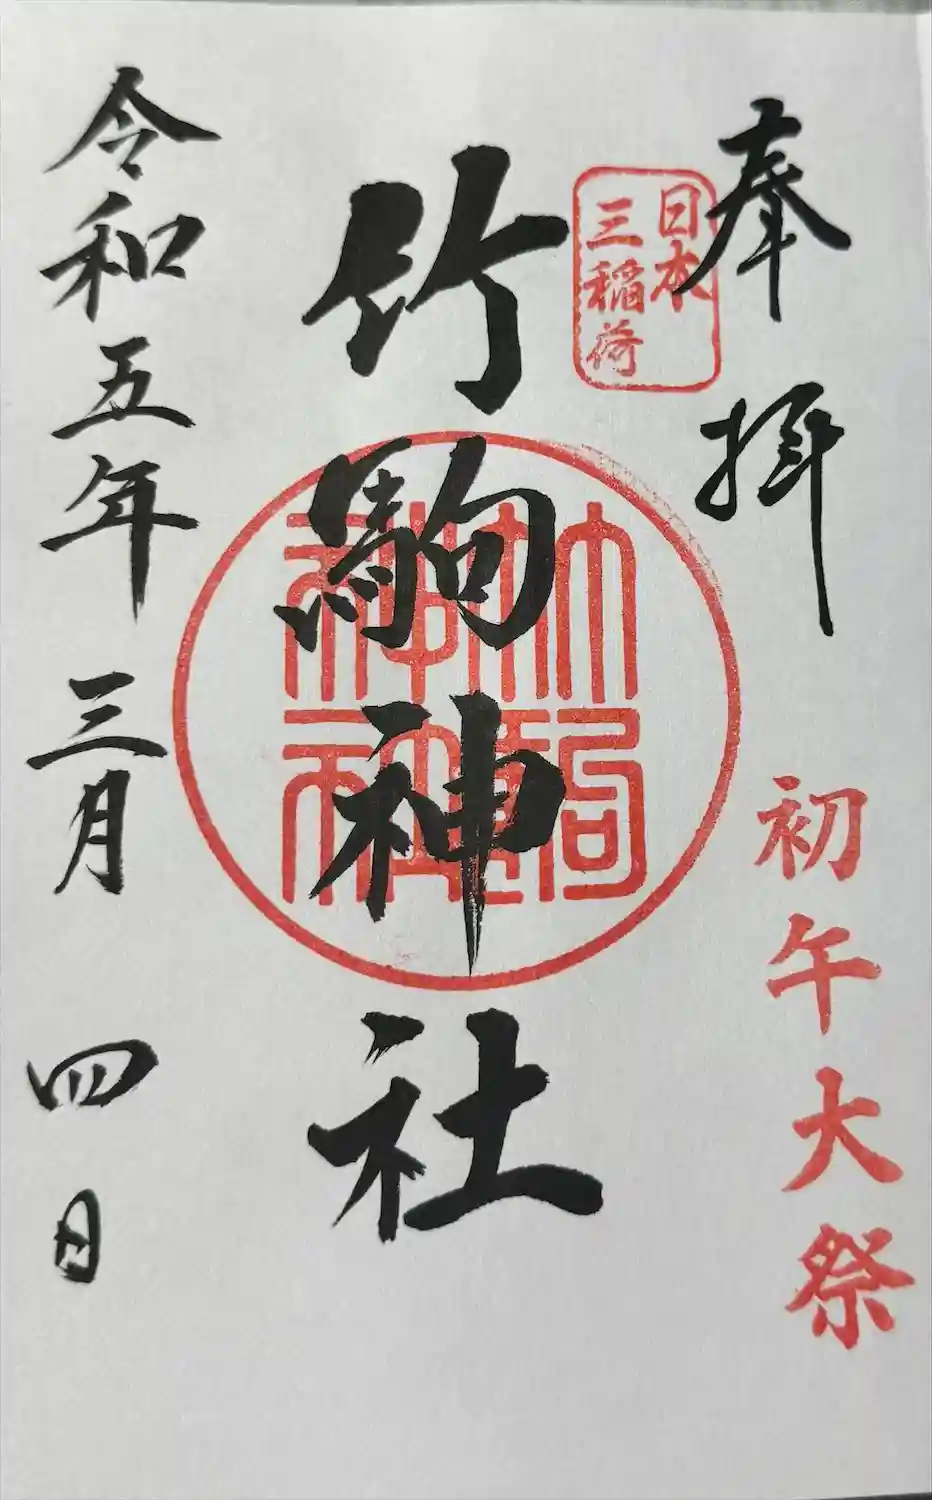 奉拝
日本
三稲荷
初午大祭
竹駒神社
竹駒神社
令和五年三月四日